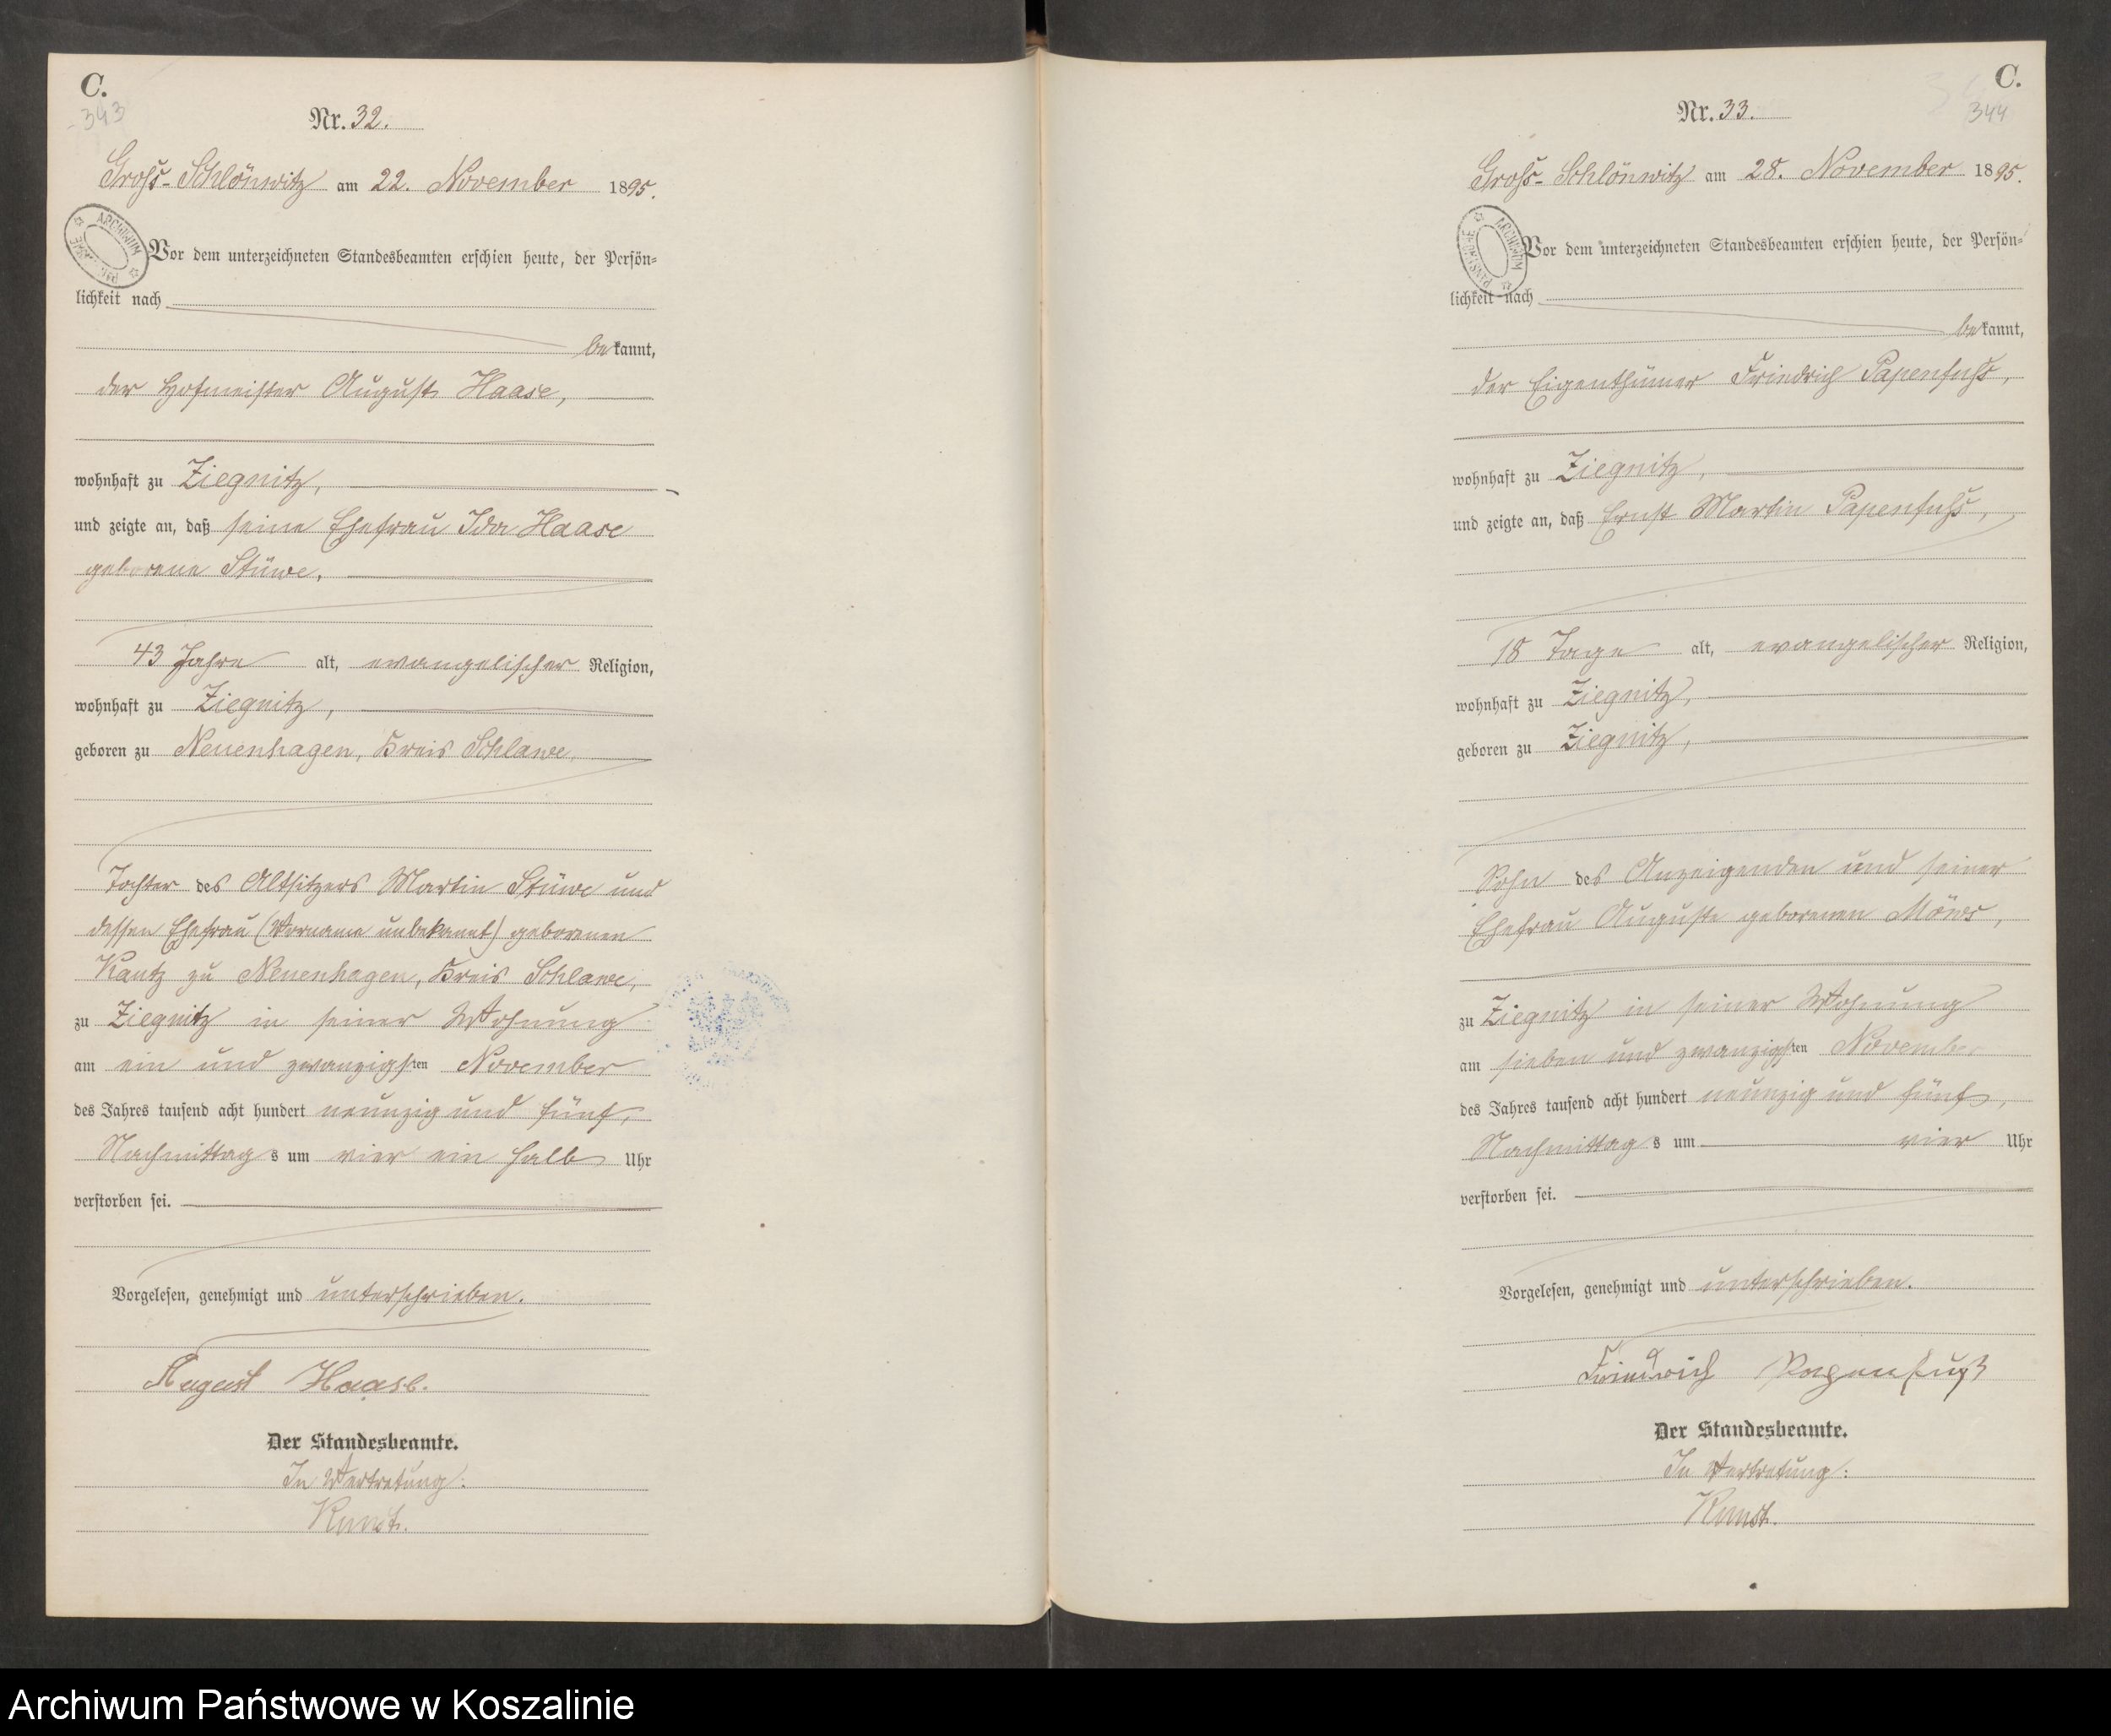 C.
343
Nr. 32.
Groß-Schlönwitz am 22. November 1895.
ARCHIWUM PAŃSTWOWE
Vor dem unterzeichneten Standesbeamten erschien heute, der Persön=
lichkeit nach
bekannt,
der Hofmeister August Haase,
wohnhaft zu Ziegnitz,
und zeigte an, daß seine Ehefrau Ida Haase
geborene Stüwe,
43 Jahre alt, evangelischer Religion,
wohnhaft zu Ziegnitz,
geboren zu Neuenhagen, Kreis Schlawe,
Tochter des Altsitzers Martin Stüwe und
dessen Ehefrau (Vorname unbekannt) geborenen
Kautz zu Neuenhagen, Kreis Schlawe,
zu Ziegnitz in seiner Wohnung
am ein und zwanzigsten November
des Jahres tausend acht hundert neunzig und fünf,
Nachmittags um vier ein halb Uhr
verstorben sei.
Vorgelesen, genehmigt und unterschrieben.
August Haase.
Der Standesbeamte.
In Vertretung:
Kunst.
C.
344
Nr. 33.
Groß-Schlönwitz am 28. November 1895.
ARCHIWUM PAŃSTWOWE
Vor dem unterzeichneten Standesbeamten erschien heute, der Persön=
lichkeit nach
bekannt,
der Eigenthümer Friedrich Papenfuß,
wohnhaft zu Ziegnitz,
und zeigte an, daß Ernst Martin Papenfuß,
18 Tage alt, evangelischer Religion,
wohnhaft zu Ziegnitz,
geboren zu Ziegnitz,
Sohn des Anzeigenden und seiner
Ehefrau Auguste geborenen Möws,
zu Ziegnitz in seiner Wohnung
am sieben und zwanzigsten November
des Jahres tausend acht hundert neunzig und fünf,
Nachmittags um vier Uhr
verstorben sei.
Vorgelesen, genehmigt und unterschrieben.
Friedrich Papenfuß
Der Standesbeamte.
In Vertretung:
Kunst.
Archiwum Państwowe w Koszalinie